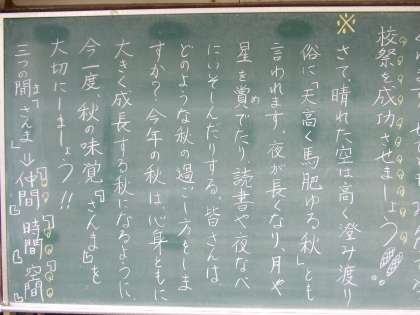 校祭を成功させましょう!!
※さて、晴れた空は高く澄み渡り
俗に「天高く馬肥ゆる秋」とも
言われます。夜が長くなり、月や
星を賞(め)でたり、読書や夜なべ
にいそしんだりする。皆さんは
どのような秋の過ごし方をしま
すか?今年の秋は、心身ともに
大きく成長する秋になるように、
今一度、秋の味覚『さんま』を
大切にしましょう!!
三つの間(ま)『さんま』⇒『仲間』『時間』『空間』